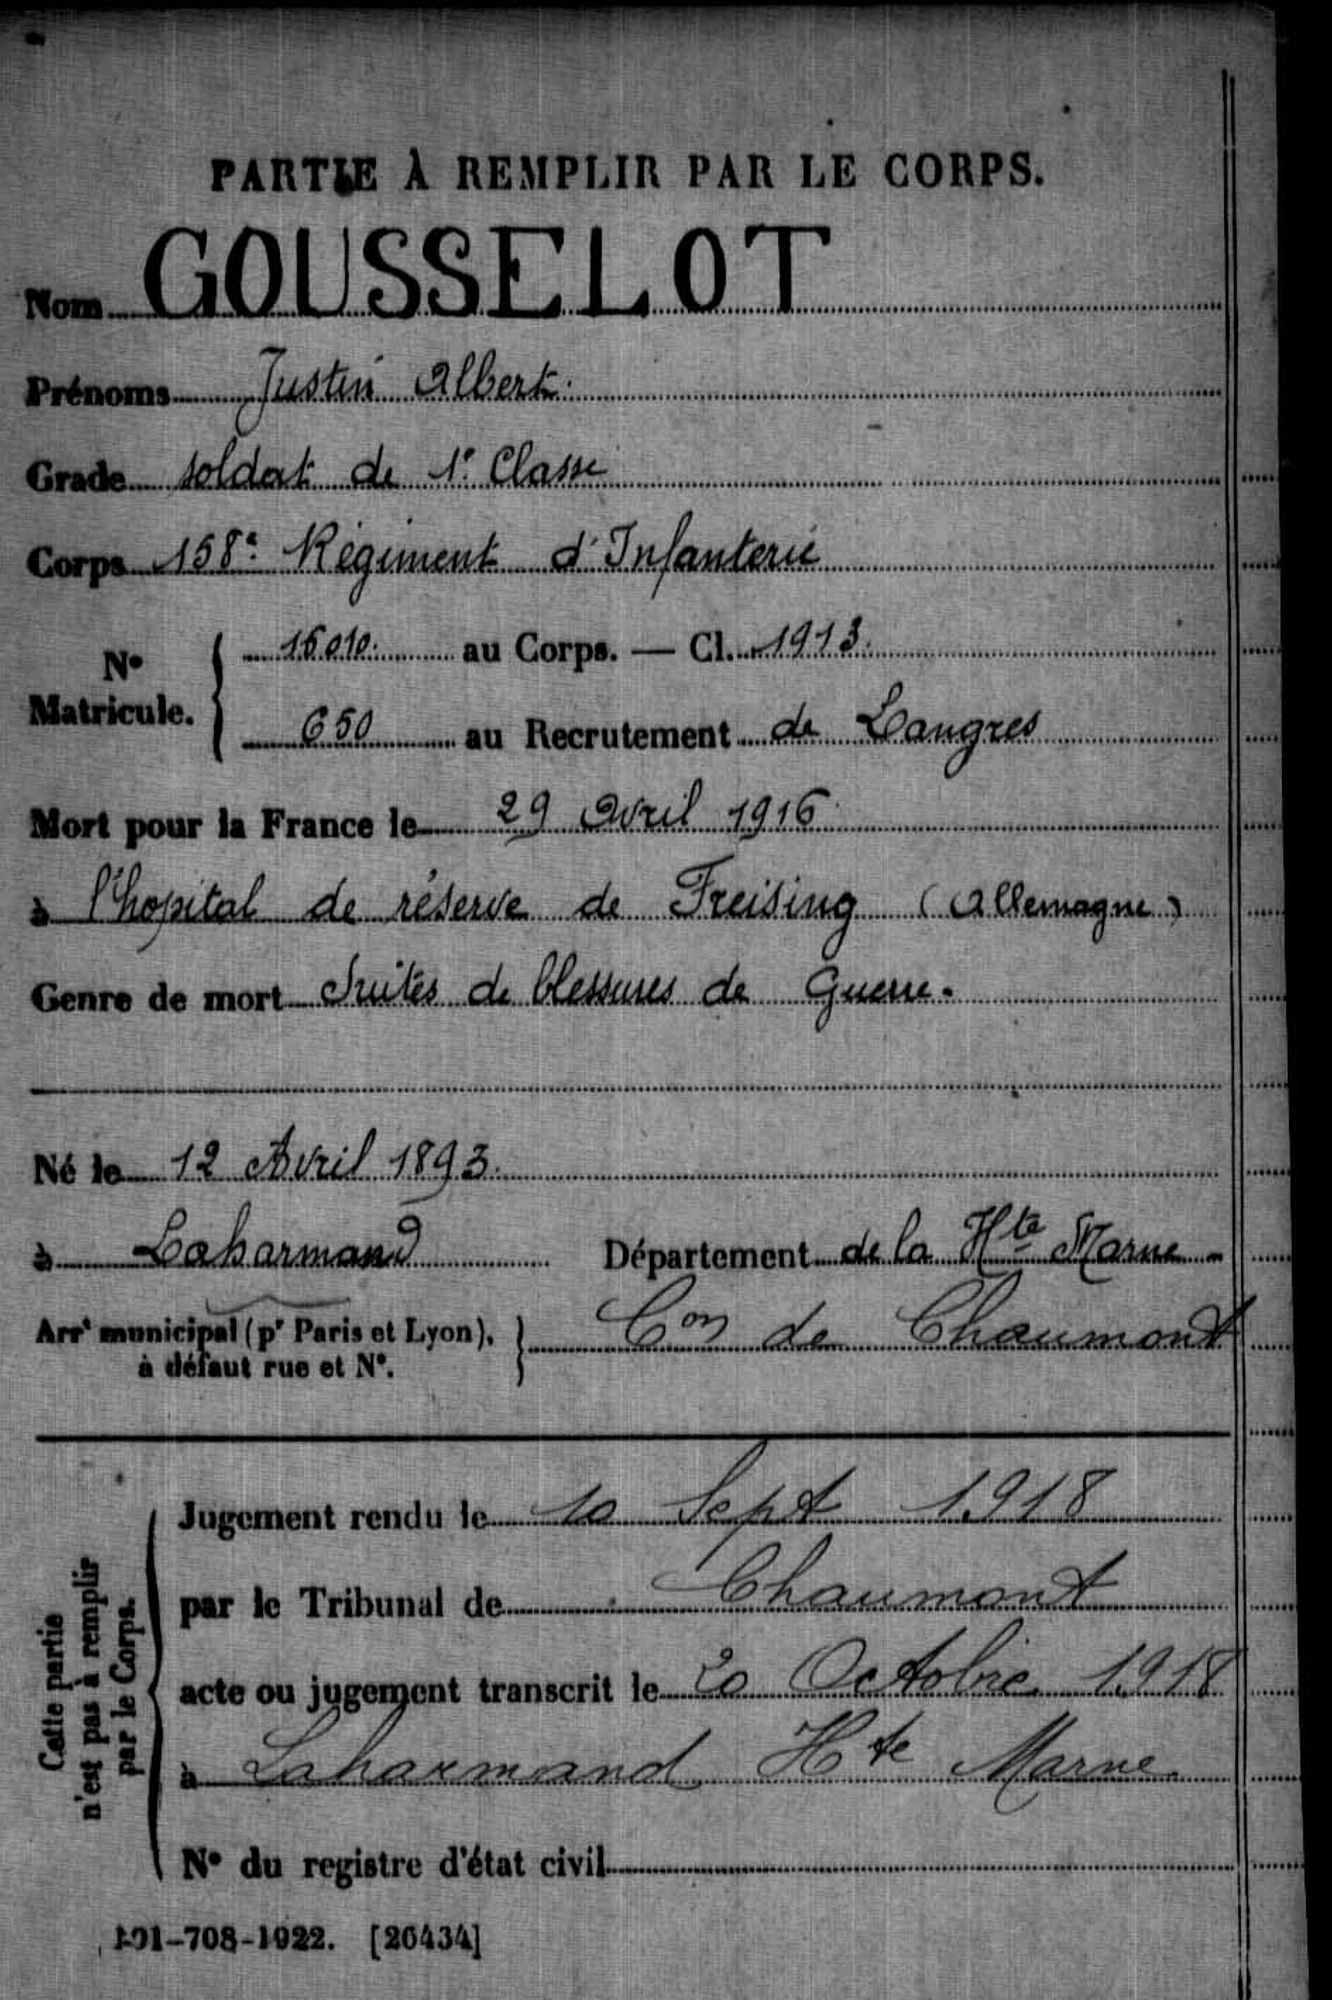 PARTIE À REMPLIR PAR LE CORPS.
Nom GOUSSELOT
Prénoms Justin Albert.
Grade soldat de 1e Classe
Corps 158e Régiment d'Infanterie
No Matricule. { 16010. au Corps. — Cl. 1913.
650 au Recrutement de Langres
Mort pour la France le 29 Avril 1916
à l'hopital de réserve de Freising (Allemagne)
Genre de mort Suites de blessures de Guerre.
Né le 12 Avril 1893.
à Laharmand Département de la Hte Marne
Arrt municipal (pr Paris et Lyon), à défaut rue et No. } Con de Chaumont
Cette partie n'est pas à remplir par le Corps.
Jugement rendu le 10 Sept 1918
par le Tribunal de Chaumont
acte ou jugement transcrit le 20 Octobre 1918
à Laharmand Hte Marne
No du registre d'état civil
101-708-1922. [26434]